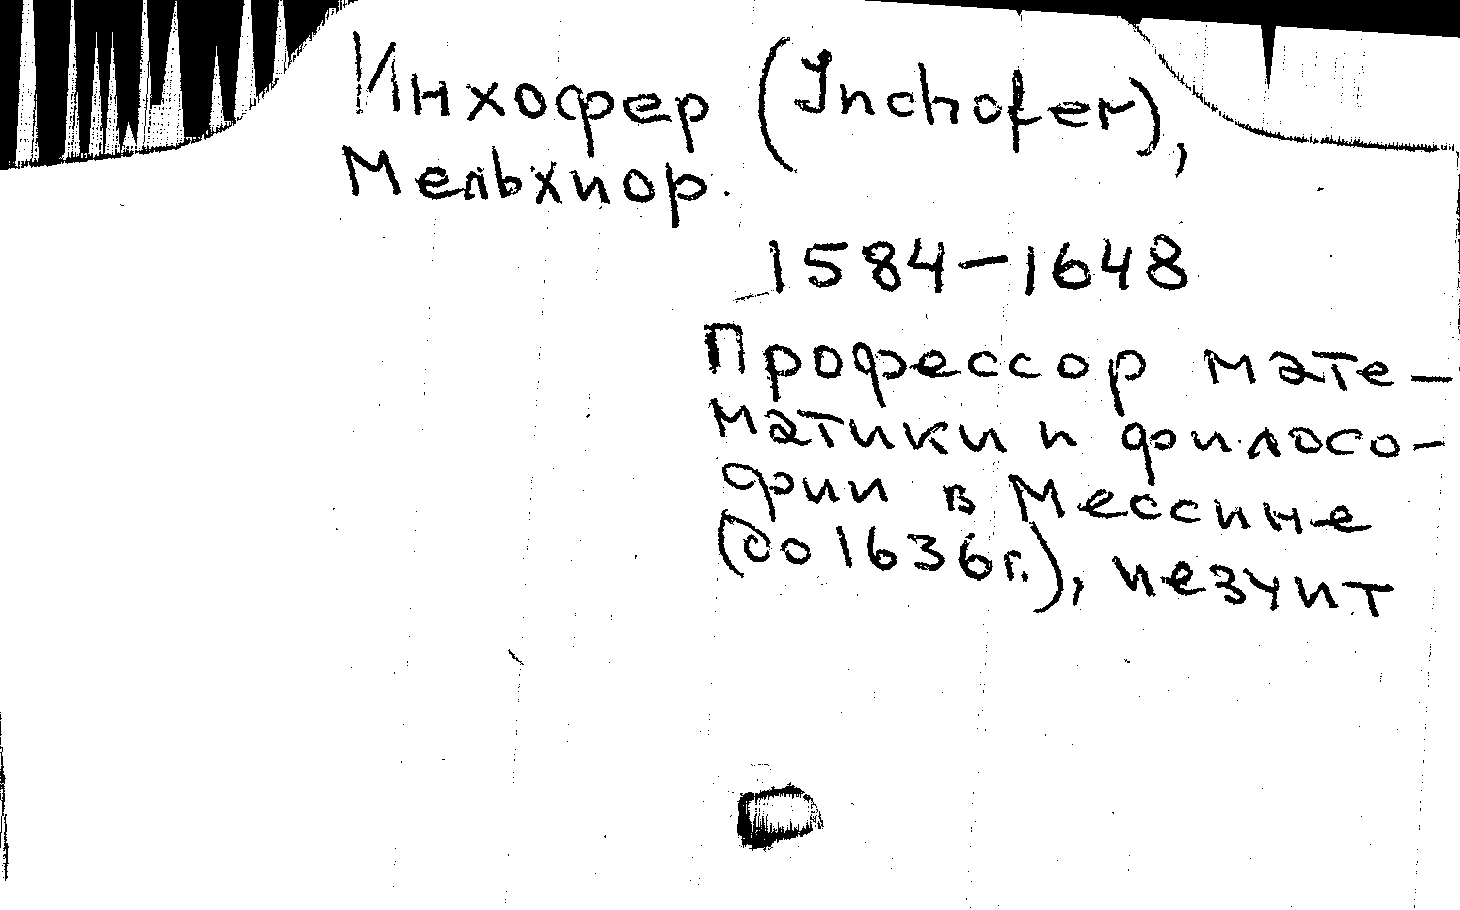 Инхофер (Inchofer),
Мельхиор.
1584–1648
Профессор мате-
матики и филосо-
фии в Мессине
(до 1636 г.), иезуит